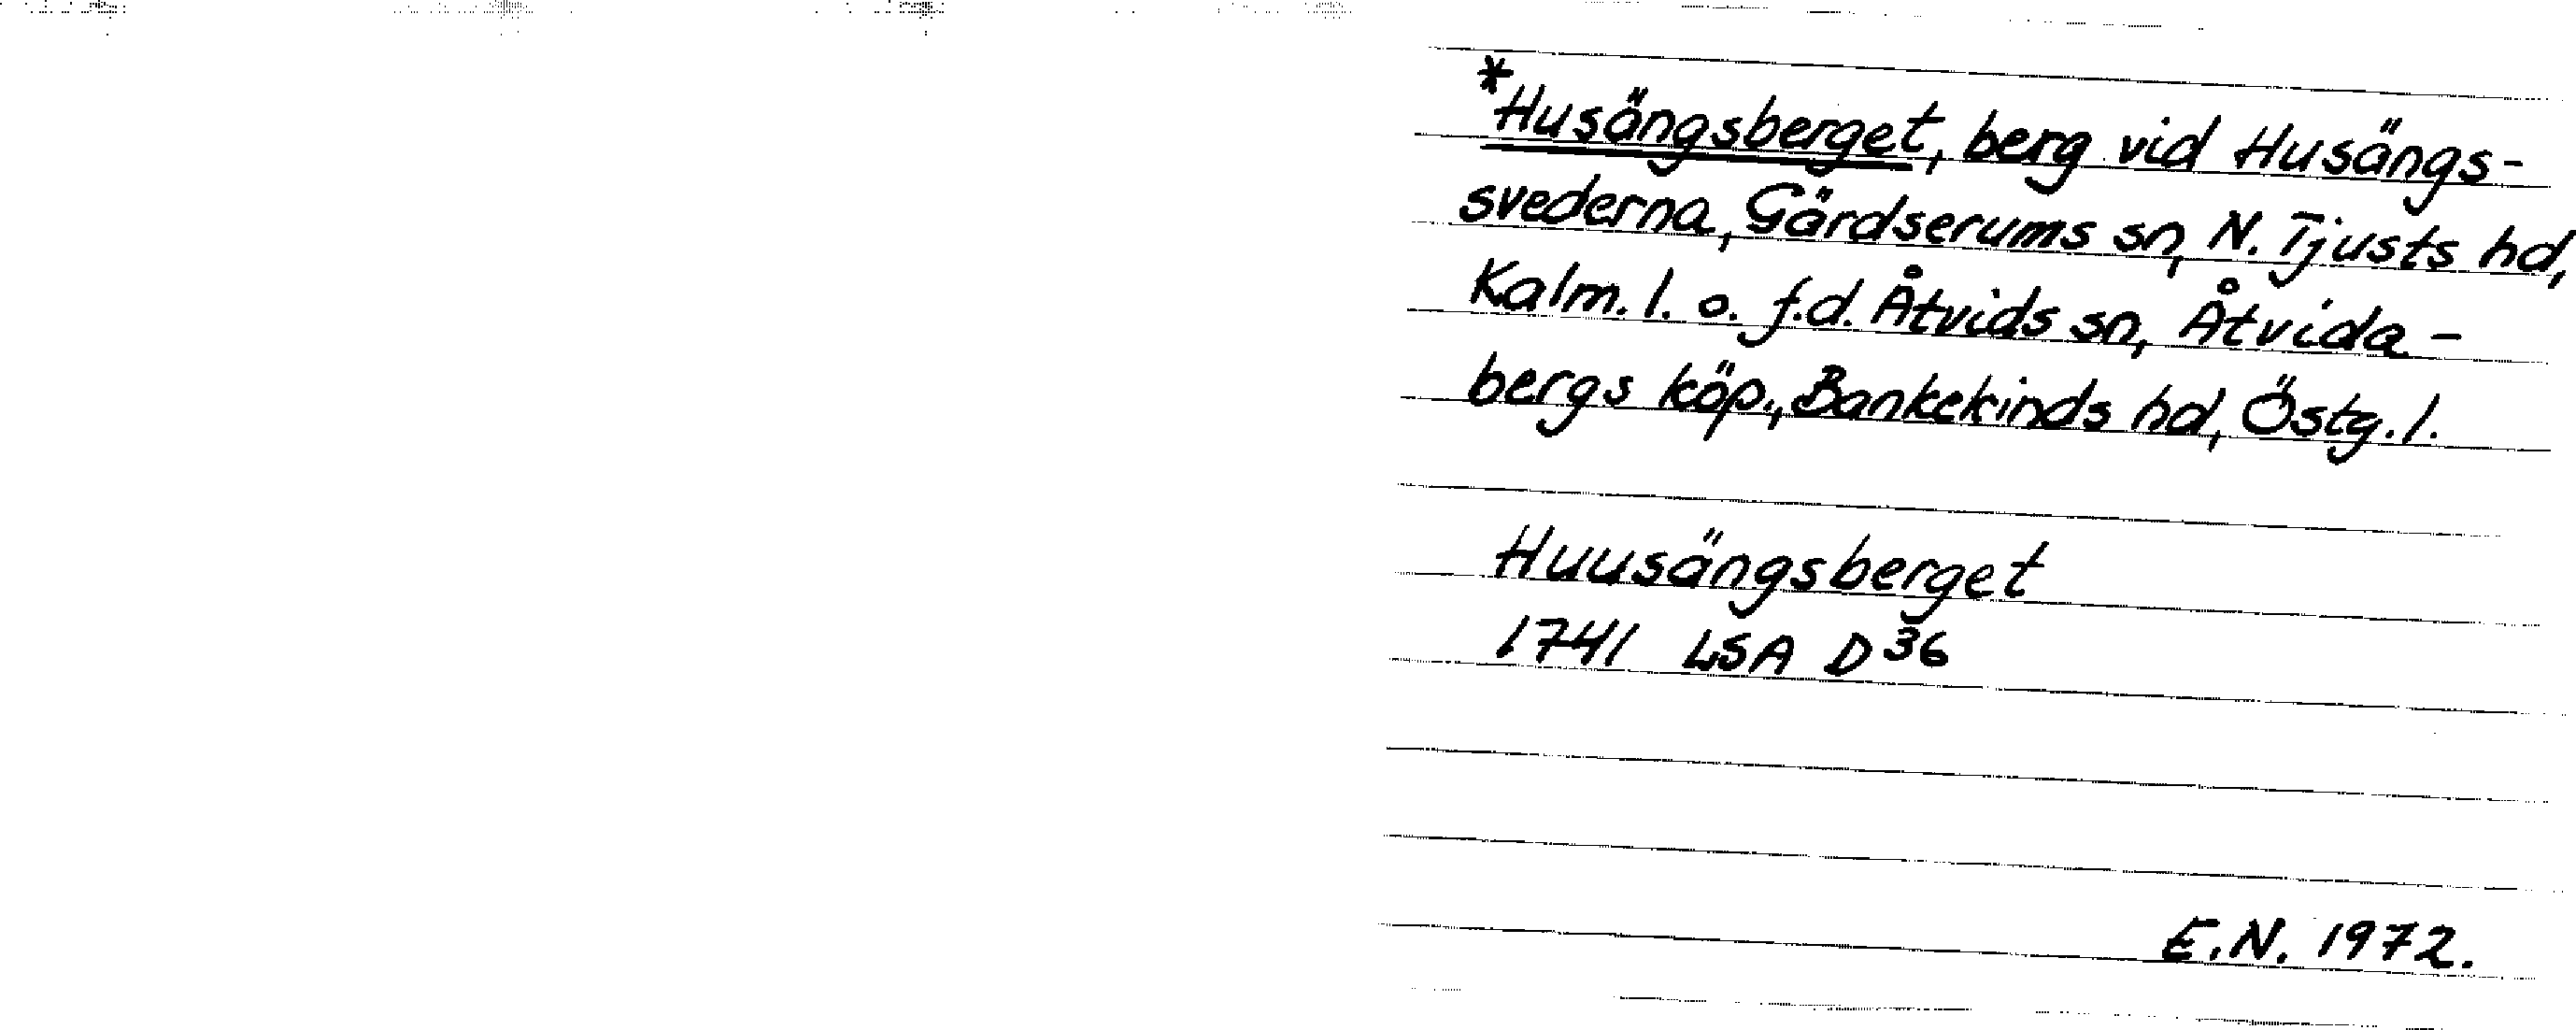 *Husängsberget, berg vid Husängs-
svederna, Gärdserums sn, N. Tjusts hd,
Kalm. l. o. f.d. Åtvids sn, Åtvida-
bergs köp., Bankekinds hd, Östg. l.
Huusängsberget
1741 LSA D 36
E.N. 1972.